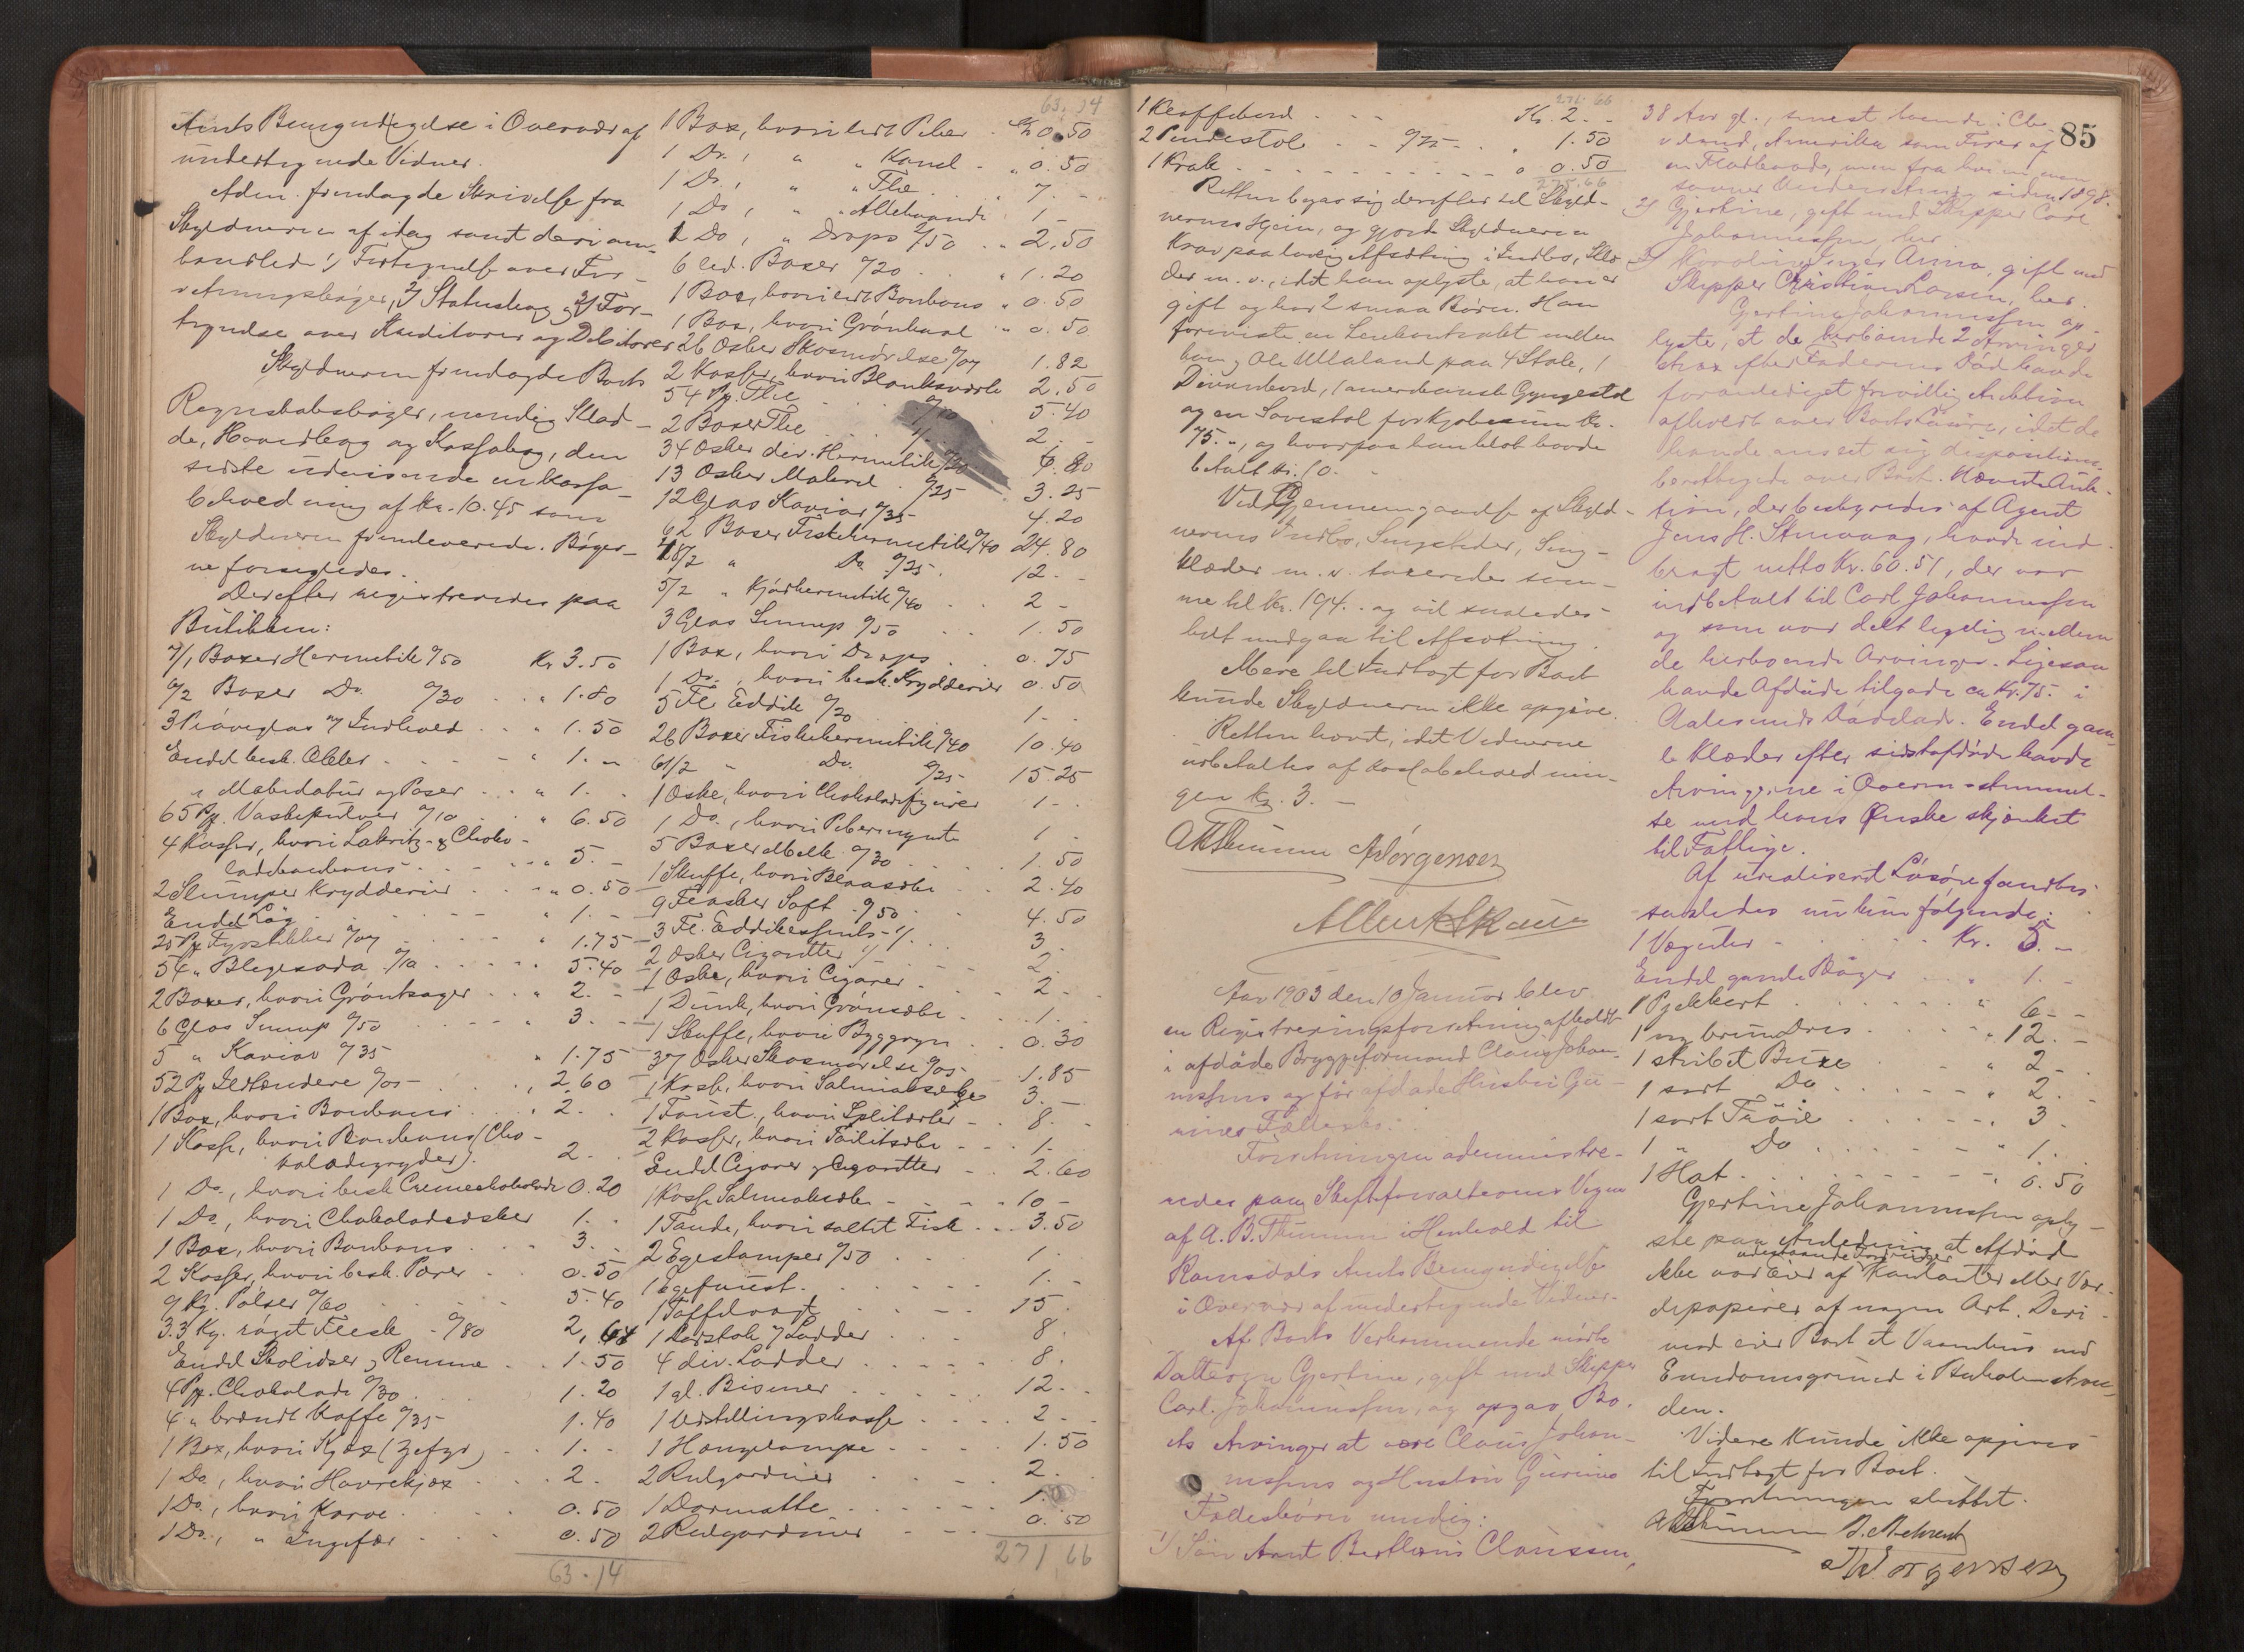 Amts Bemyndigelse i Overvær af
undertegnede Vidner.
Aden. fremlagde Skrivelse fra
Skyldneren af idag samt deri om-
handlede 1) Fortegnelse over For-
retningsbøger, 2) Statusbog og 3) For-
tegnelse over Kreditorer og Debitorer
Skyldneren fremlagde Boets
Regnskabsbøger, nemlig Klad-
de, Hovedbog og Kassabog, den
sidste udvisende en Kassa-
beholdning af Kr. 10.45 som
Skyldneren fremleverede. Bøger-
ne forsegledes.
Derefter registreredes paa
Butikken:
7/1 Boxer Hermetik a/50 Kr 3.50
6/2 Boxer Do. a/30 " 1.80
3 Prøveglas m/ Indhold " 1.50
Endel besk. Æbler " 1. "
" Makulatur og Poser " 1.
65 Pk. Vaskepulver a/10 " 6.50
4 Kasser, hvori Lakritz- & Choko-
ladebonbons " 5. -
2 Slumper Krydderier " 0.50
Endel Løg " 1. -
25 Pk Fyrstikker a/07 " 1.75
54 " Blegesoda a/10 " 5.40
2 Boxer, hvori Grøntsager " 2. -
6 Glas Sennep a/50 3. -
5 " Kaviar a/35 " 1.75
52 Pk Ildtændere a/05 " 2.60
1 Box, hvori Bonbons " 2.
1 Kasse, hvori Bonbons (Cho-
koladegryder). 2.
1 Do., hvori besk Cremechokolade 0.20
1 Do., hvori Chokoladeæsker 1.
1 Box, hvori Bonbons 3.
2 Kasser, hvori besk. Pærer 0.50
9 Kg. Pølser a/60 5.40
3.3 Kg. røget Flesk a/80 2.64
Endel Skolidser & Remme 1.50
4 Pk. Chokolade a/30 1.20
4 " brændt Kaffe a/35 1.40
1 Box, hvori Kjæx (Zefyr) 1. -
1 Do., hvori Havrekjæx 2.
1 Do., hvori Karve 0.50
1 Do., " Ingefær 0.50
63.14
63.14
1 Box, hvori lidt Peber Kr 0.50
1 Do., " " Kanel " 0.50
1 Do., " " The " 7. -
1 Do, " " Allehaande 1 -
1 Do, " Drops a/50 2.50
6 led. Boxer a/20 " 1.20
1 Box, hvori lidt Bonbons " 0.50
1 Box, hvori Grønkaal " 0.50
26 Æsker Skosmørelse a/07 1.82
2 Kasser, hvori Blanksværte 2.50
54 Pk. The a/10 5.40
2 Boxer The 1/- 2. -
34 Æsker div. Hermetik a/20 6.80
13 Æsker Makrel a/25 3.25
12 Glas Kaviar a/35 4.20
62 Boxer Fiskehermetik a/40 24.80
48/2 " Do. a/25 12. -
5/2 " Kjødhermetik a/40 2 -
3 Glas Sennep a/50 1.50
1 Box, hvori Drops 0.75
1 Do., hvori besk. Krydderier 0.50
5 Fl Eddik a/20 1. -
26 Boxer Fiskehermetik a/40 10.40
61/2 " Do. a/25 15.25
1 Æske, hvori Chokoladefigurer 1 -
1 Do., hvori Pebermynte 1 -
5 Boxer Melk a/30 1.50
1 Skuffe, hvori Blaasæbe 2.40
9 Flasker Saft a/50 4.50
3 Fl. Eddikessents 1/- 3 -
2 Æsker Cigaretter 1/- 2.
1 Æske, hvori Cigarer 2 -
1 Dunk, hvori Grønsæbe 1. -
1 Skuffe, hvori Byggryn 0.30
37 Æsker Skosmørelse a/05 1.85
1 Kasse, hvori Salmiaksæbe 3. -
1 Foust., hvori Spliterter 8. -
2 Kasser, hvori Toiletsæbe 1. -
Endel Cigarer & Cigaretter 2.60
1 Kasse Salmiaksæbe 10 -
1 Tønde, hvori saltet Fisk 3.50
2 Egestamper a/50 1. -
1 Egefoust. 1. -
1 Taffelvægt 15.
1 Lodstok & Lodder 8.
4 div. Lodder 8.
1 gl. Bismer 12. -
1 Udstillingskasse 2 -
1 Hængelampe 1.50
2 Rulgardiner 2.
1 Dørmatte 1.
2 Rulgardiner 0.50
271 66
271.66
1 Kaffebord Kr. 2. -
2 Pindestole a/75 " 1.50
1 Krak " 0.50
275.66
Retten begav sig derefter til Skyld-
nerens Hjem, og gjorde Skyldneren
Krav paa lovlig Afsætning i Indbo, Klæ-
der m. v., idet han oplyste, at han er
gift og har 2 smaa Børn. Han
foreviste en Leiekontrakt mellem
ham og Ole Ulleland paa 4 Stole, 1
Divanbord, 1 amerikansk Gyngestol
og en Lænestol for Kjøbesum Kr.
75. -, og hvorpaa han blot havde
betalt Kr. 10. -
Ved Gjennemgaaelse af Skyld-
nerens Indbo, Sengesteder, Seng-
klæder m. v. taxeredes som-
me til Kr. 194. - og vil saaledes
helt medgaa til Afsætning.
Mere til Indtægt for Boet
kunde Skyldneren ikke opgive.
Retten hævet, idet Vidnerne
udbetaltes af Kassabeholdnin-
gen Kr. 3. -
ABThumm AJørgensen
Albert Skaue
Aar 1903 den 10 Januar blev
en Registreringsforretning afholdt
i afdøde Bryggeformand Claus Johan-
nessens og før afdøde Hustru Gu-
rines Fællesbo.
Forretningen administre-
redes paa Skifteforvalterens Vegne
af A. B. Thumm i Henhold til
Romsdals Amts Bemyndigelse
i Overvær af undertegnede Vidner.
Af Boets Vedkommende mødte
Datteren Gjertine, gift med Skipper
Carl Johannessen, og opgav Bo-
ets Arvinger at være Claus Johan-
nessens og Hustru Gurines
Fællesbørn nemlig:
1) Søn Arnt Berthinus Claussen,
85
38 Aar gl., senest boende i Cle-
veland, Amerika som Fører af
en Flodbaad, men fra hvem man
savner Underretning siden 1898.
2) Gjertine, gift med Skipper Carl
Johannessen, her.
3) Karoline Inger Anna, gift med
Skipper Christian Larsen, her.
Gjertine Johannessen op-
lyste, at de herboende 2 Arvinger
strax efter Faderens Død havde
foranlediget frivillig Auktion
afholdt over Boets Løsøre, idet de
havde anseet sig dispositions-
berettigede over Boet. Nævnte Auk-
tion, der bestyredes af Agent
Jens H. Stenvaag, havde ind-
bragt netto Kr. 60.51, der var
indbetalt til Carl Johannessen
og som var delt ligelig mellem
de herboende Arvinger. Ligesaa
havde Afdøde tilgode ca Kr. 75. - i
Aalesunds Dødslade. Endel gam-
le Klæder efter sidstafdøde havde
Arvingerne i Overensstemmel-
se med hans Ønske skjænket
til Fattige.
Af urealiseret Løsøre fandtes
saaledes nu kun følgende:
1 Vægeuhr Kr. 5. -
Endel gamle Bøger " 1. -
1 Pjekkert " 6. -
1 ny brun Dres " 12. -
1 stribet Buxe " 2 -
1 sort Do " 2. -
1 sort Trøie " 3 -
1 " Do " 1. -
1 Hat " 0.50
Gjertine Johannessen oply-
ste paa Anledning at Afdøde
udestaaende Fordringer
ikke var Eier af Kontanter eller Vær-
dipapirer af nogen Art. Deri-
mod eier Boet et Vaanehus med
Eiendomsgrund i Buholmstran-
den.
Videre kunde ikke opgives
til Indtægt for Boet.
Forretningen sluttet.
ABThumm B. Behrent
AJørgensen